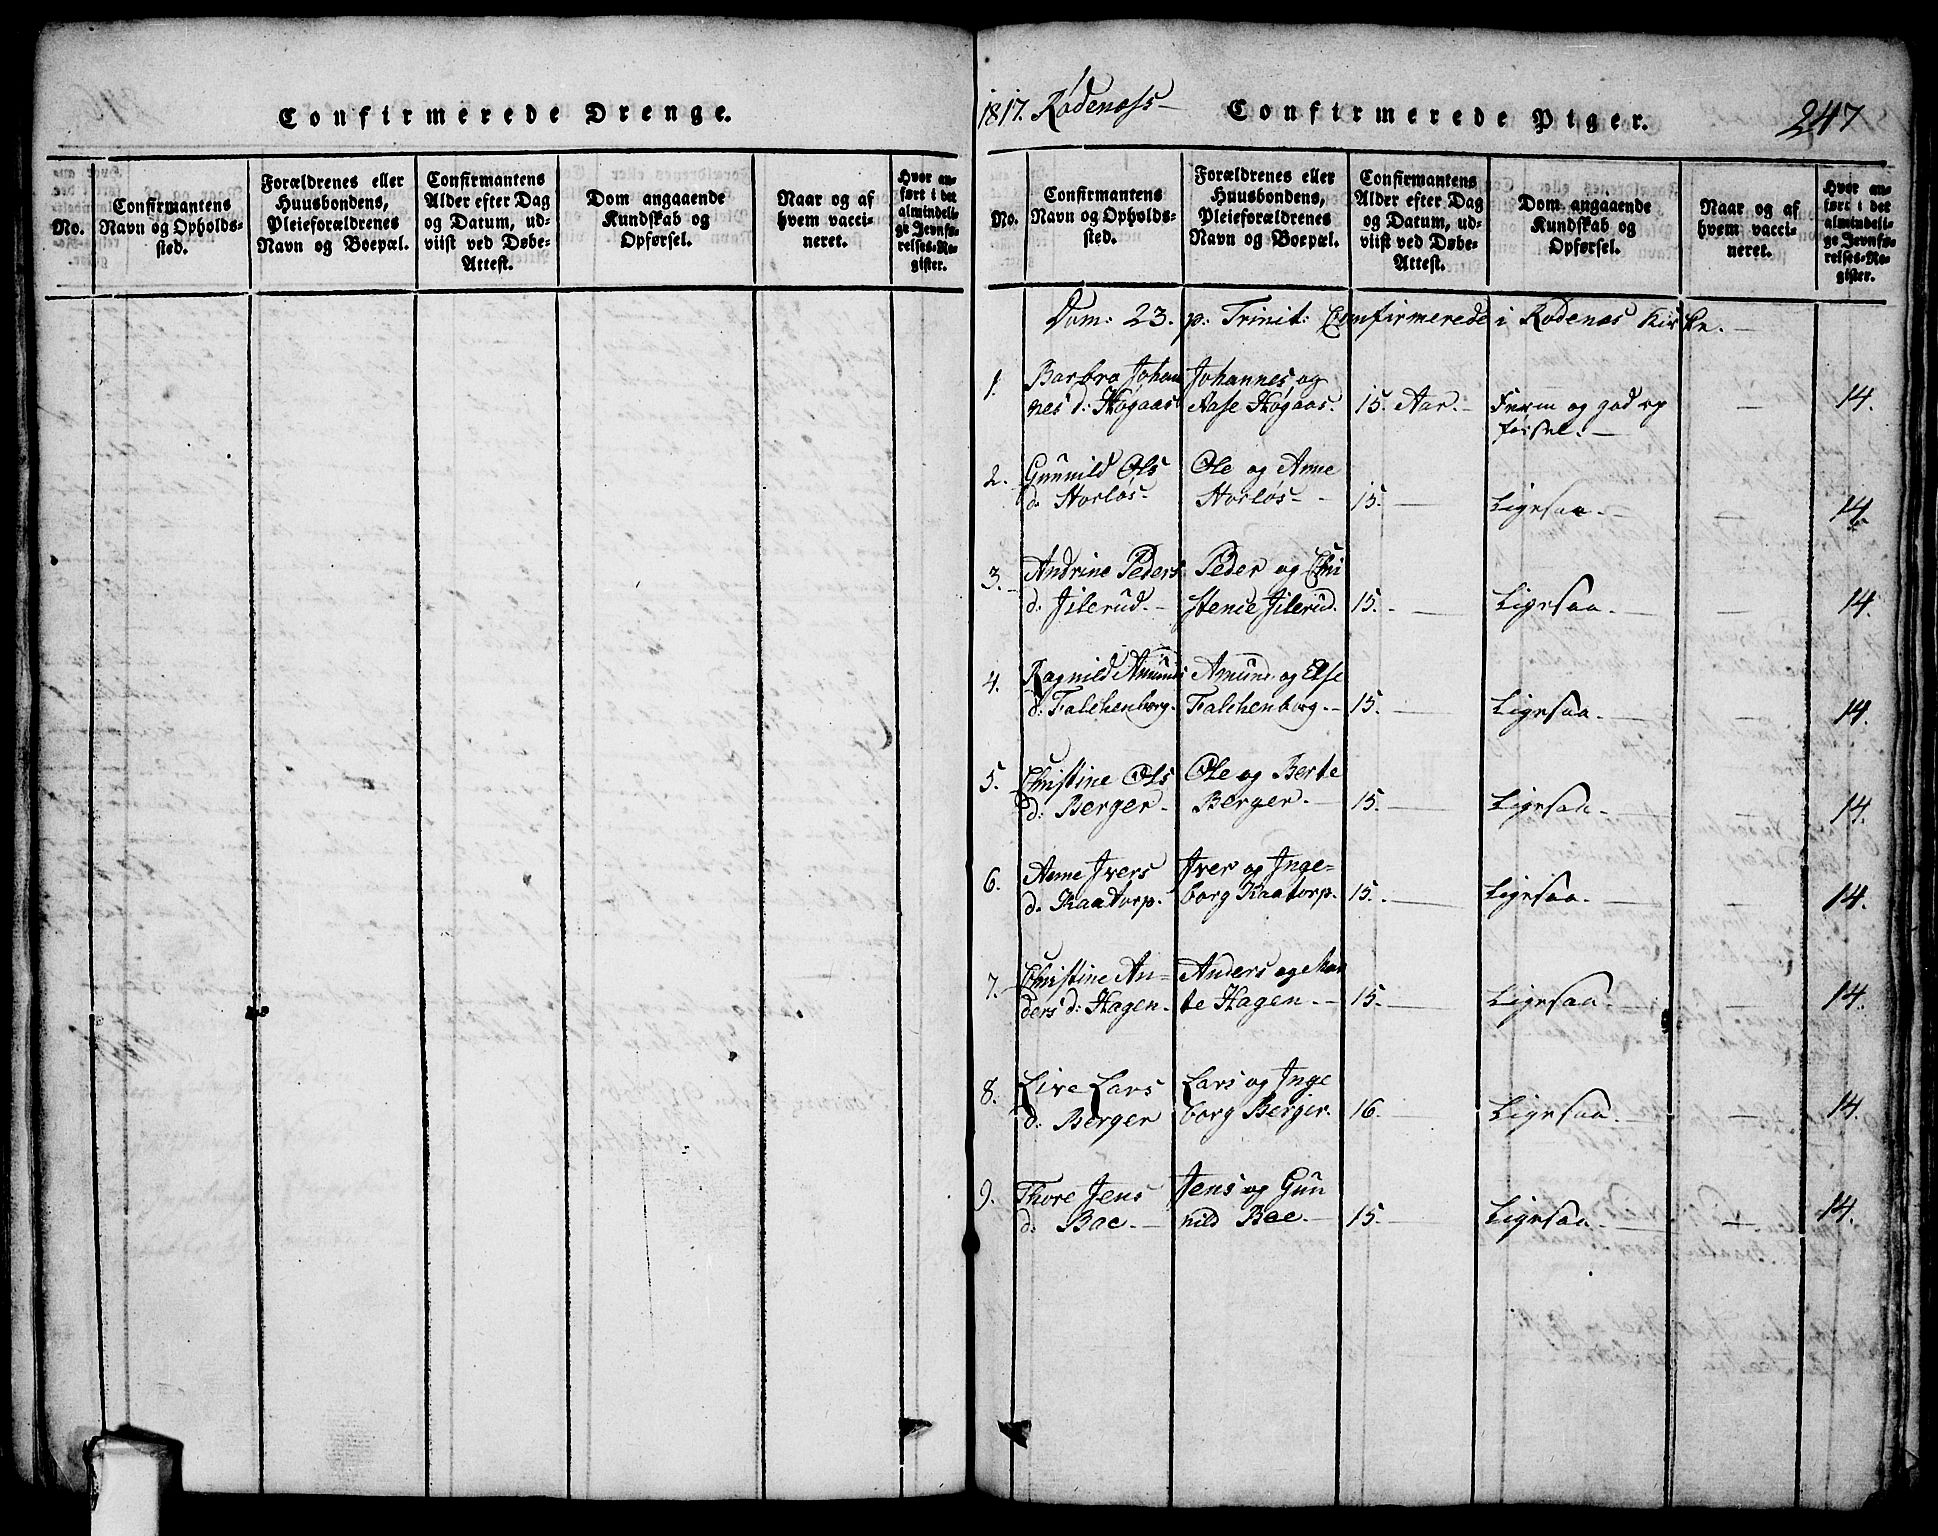 Confirmerede Drenge.
No.
Confirmantens
Navn og Opholds-
sted.
Forældrenes eller
Huusbondens,
Pleieforældrenes
Navn og Boepæl.
Confirmantens
Alder efter Dag
og Datum, ud-
viist ved Døbe-
Attest.
Dom angaaende
Kundskab og
Opførsel.
Naar og af
hvem vacci-
neret.
Hvor an-
ført i det
almindeli-
ge Jevnfø-
relses-Re-
gister.
1817. Rødenæss
Confirmerede Piger.
247
No.
Confirmantens
Navn og Opholds-
sted.
Forældrenes eller
Huusbondens,
Pleieforældrenes
Navn og Boepæl.
Confirmantens
Alder efter Dag
og Datum, ud-
viist ved Døbe-
Attest.
Dom angaaende
Kundskab og
Opførsel.
Naar og af
hvem vacci-
neret.
Hvor an-
ført i det
almindeli-
ge Jevnfø-
relses-Re-
gister.
Dom: 23. p: Trinit: Confirmerede i Rødenæs Kirke. —
1. Barbra Johan Johannes og
nes d: Høgaas Aase Høgaas. 15. Aar. — Ferm og god op — 14.
førsel. —
2. Gunnild Ols Ole og Anne
d: Horløs — Horløs — 15. — Ligesaa. — — 14.
3. Andrine Peders Peder og Chri
d: Jilerud. — stence Jilerud. 15. — Ligesaa — — 14.
4. Ragnild Amunds Amund og Else
d: Falchenborg. Falchenborg. — 15. — Ligesaa. — — 14.
5. Christine Ols Ole og Berte
d: Berger. Berger. — 15. — Ligesaa. — 14.
6. Anne Ivers Iver og Inge-
d. Kaatorp. borg Kaatorp. 15. — Ligesaa. — — 14.
7. Christine An- Anders og Mar
ders d: Hagen. te Hagen. — 15. — Ligesaa. — — 14.
8. Live Lars Lars og Inge
d: Berger borg Berger. 16. — Ligesaa. — — 14.
9. Thore Jens Jens og Gun
d: Bae. — nild Bae. — 15. — Ligesaa. — — 14.